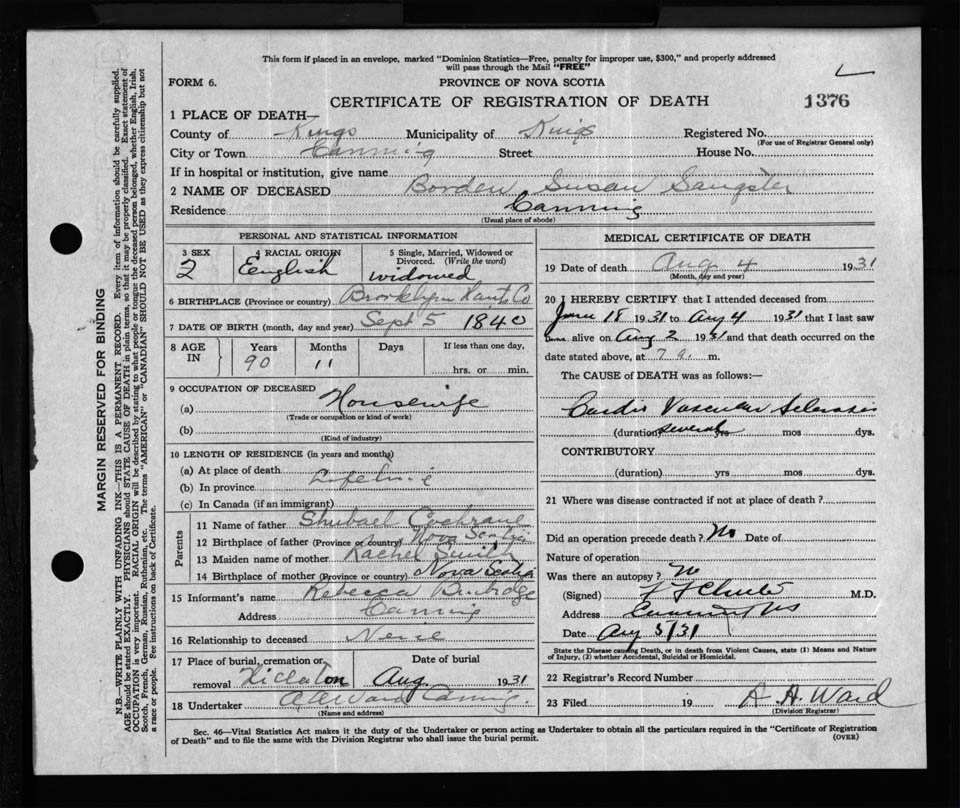 This form if placed in an envelope, marked "Dominion Statistics—Free, penalty for improper use, $300," and properly addressed
will pass through the Mail "FREE"
FORM 6.
PROVINCE OF NOVA SCOTIA
CERTIFICATE OF REGISTRATION OF DEATH
1376
1 PLACE OF DEATH—
County of Kings Municipality of Kings Registered No.
(For use of Registrar General only)
City or Town Canning Street House No.
If in hospital or institution, give name
2 NAME OF DECEASED Borden, Susan Sangster
Residence Canning
(Usual place of abode)
PERSONAL AND STATISTICAL INFORMATION
3 SEX 4 RACIAL ORIGIN 5 Single, Married, Widowed or
Divorced. (Write the word)
2 English widowed
6 BIRTHPLACE (Province or country) Brooklyn Hants Co
7 DATE OF BIRTH (month, day and year) Sept 5 1840
8 AGE IN Years Months Days If less than one day,
90 11 hrs. or min.
9 OCCUPATION OF DECEASED
(a) Housewife
(Trade or occupation or kind of work)
(b)
(Kind of industry)
10 LENGTH OF RESIDENCE (in years and months)
(a) At place of death
(b) In province Lifetime
(c) In Canada (if an immigrant)
Parents
11 Name of father Shubael Cochrane
12 Birthplace of father (Province or country) Nova Scotia
13 Maiden name of mother Rachel Smith
14 Birthplace of mother (Province or country) Nova Scotia
15 Informant's name Rebecca
Address Canning
16 Relationship to deceased
17 Place of burial, cremation or Date of burial
removal Aug 1931
18 Undertaker A A Ward Canning
(Name and address)
MEDICAL CERTIFICATE OF DEATH
19 Date of death Aug 4 1931
(Month, day and year)
20 I HEREBY CERTIFY that I attended deceased from
June 18 1931 to Aug 4 1931 that I last saw
alive on Aug 2 1931 and that death occurred on the
date stated above, at 7 a. m.
The CAUSE OF DEATH was as follows:—
Cardio Vascular Sclerosis
(duration) several yrs mos dys.
CONTRIBUTORY
(duration) yrs mos dys.
21 Where was disease contracted if not at place of death?
Did an operation precede death? No Date of
Nature of operation
Was there an autopsy? No
(Signed) M.D.
Address Canning NS
Date Aug 5/31
State the Disease causing Death, or in death from Violent Causes, state (1) Means and Nature
of Injury, (2) whether Accidental, Suicidal or Homicidal.
22 Registrar's Record Number
23 Filed 19 A. A. Ward
(Division Registrar)
Sec. 46—Vital Statistics Act makes it the duty of the Undertaker or person acting as Undertaker to obtain all the particulars required in the "Certificate of Registration
of Death" and to file the same with the Division Registrar who shall issue the burial permit.
(OVER)
MARGIN RESERVED FOR BINDING
N.B.—WRITE PLAINLY WITH UNFADING INK—THIS IS A PERMANENT RECORD. Every item of information should be carefully supplied.
AGE should be stated EXACTLY. PHYSICIANS should STATE CAUSE OF DEATH in plain terms, so that it may be properly classified. Exact statement of
OCCUPATION is very important. RACIAL ORIGIN will be described by stating to what people or tongue the deceased person belonged, whether English, Irish,
Scotch, French, German, Russian, Ruthenian, etc. The terms "AMERICAN" or "CANADIAN" SHOULD NOT BE USED as they express citizenship but not
a race or people. See instructions on back of Certificate.